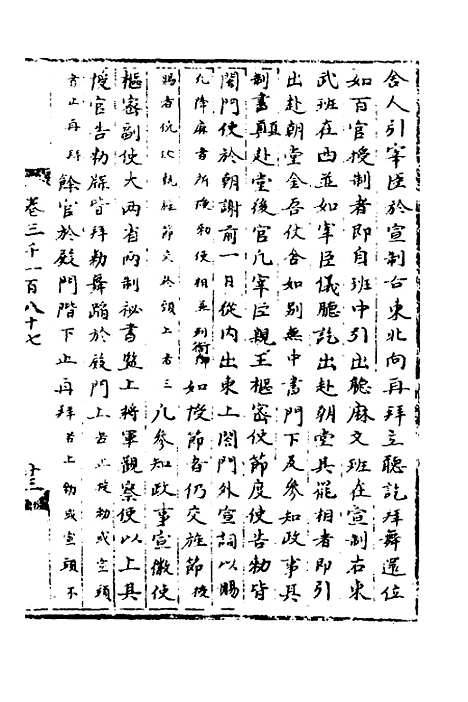 舍人引宰臣於宣制台東北向再拜立聽訖拜舞還位
如百官授制者即自班中引出聽麻文班在宣制右東
武班在西並如宰臣儀聽訖出赴朝堂其罷相者即引
出赴朝堂金吾仗舍如别無中書門下及參知政事其
制書真赴堂後官凡宰臣親王樞密使節度使告勑皆
閤門使於朝謝前一日從内出東上閤門外宣詞以賜
凡降麻書所降勑使相並列銜卿如授節者仍交旌節後
賜者仍以執旌節交於頭上者三凡參知政事宣徽使
樞密副使大兩省兩制祕書監上將軍觀察使以上具
授官告勑牒皆拜勑舞蹈於殿門上若止授勑或宣頭
者止再拜餘官於殿門階下止再拜若止勑或宣頭不
卷三千一百八十七
十三